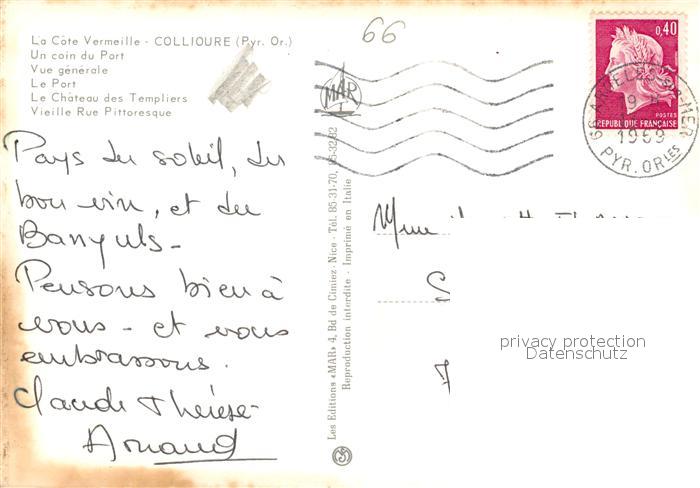 La Côte Vermeille - COLLIOURE (Pyr. Or.)
Un coin du Port
Vue générale
Le Port
Le Château des Templiers
Vieille Rue Pittoresque
66
MAR
0,40
POSTES
REPUBLIQUE FRANÇAISE
66 ARGELES MER
19
1969
PYR. ORles
Pays du soleil, du
bon vin, et du
Banyuls -
Pensons bien à
vous - et vous
embrassons.
Claude Thérèse -
Arnaud
Les Editions «MAR» 4, Bd de Cimiez - Nice - Tél. 85-31-70, 85-32-92
Reproduction interdite - Imprimé en Italie
Mme
S
7
privacy protection
Datenschutz